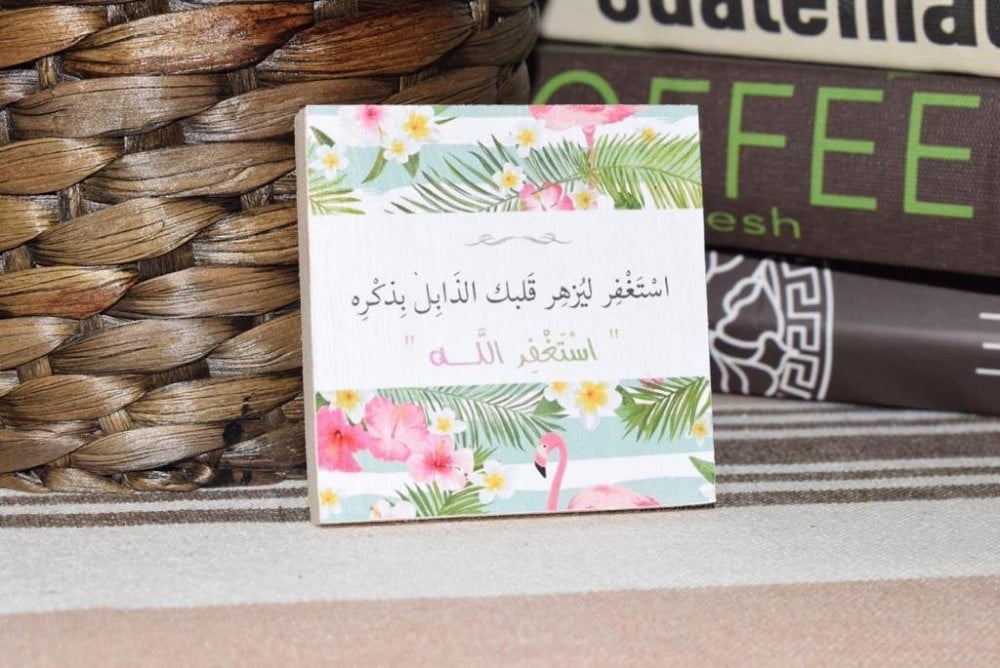 Guatemala
COFFEE
esh
اسْتَغْفِر ليُزهِر قَلبك الذَابِل بِذكْرِه
" اسْتَغْفِر اللَّـه "